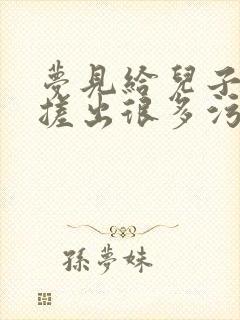 夢見給兒子
搓出很多污
孫夢妹